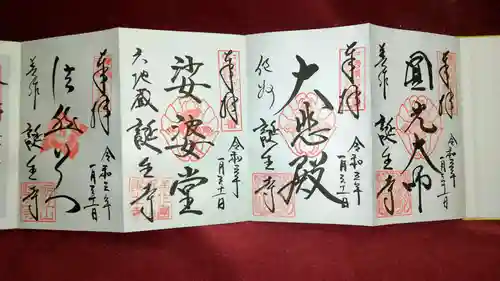 奉拝
令和三年
一月三十一日
圓光大師
美作
誕生寺
奉拝
令和三年
一月三十一日
大悲殿
作州
誕生寺
奉拝
令和三年
一月三十一日
娑婆堂
六地蔵
誕生寺
奉拝
令和三年
一月三十一日
美作
誕生寺